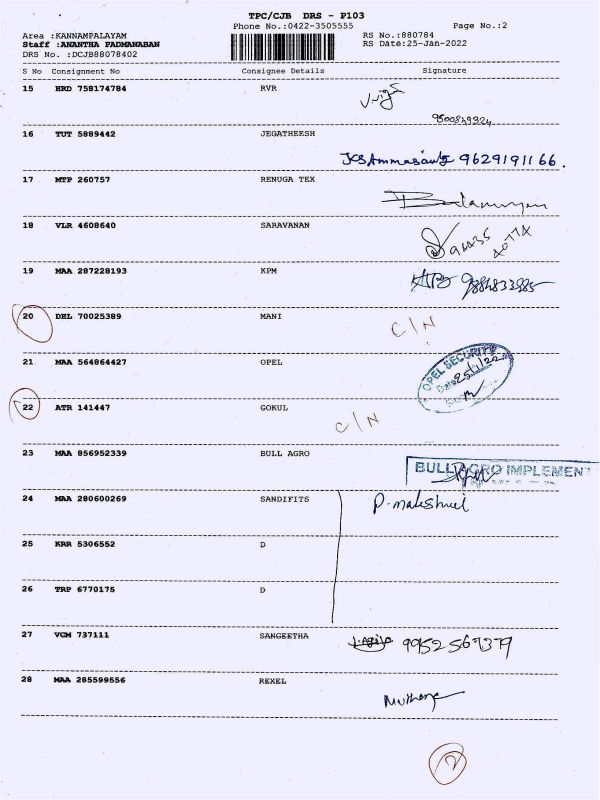 TPC/CJB DRS - P103
Phone No.:0422-3505555 Page No.:2
Area :KANNAMPALAYAM RS No.:880784
Staff :ANANTHA PADMANABAN RS Date:25-Jan-2022
DRS No. :DCJB88078402
S No Consignment No Consignee Details Signature
15 HRD 758174784 RVR
16 TUT 5889442 JEGATHEESH
9629191166.
17 MTP 260757 RENUGA TEX
18 VLR 4608640 SARAVANAN
19 MAA 287228193 KPM
20 DEL 70025389 MANI C/N
21 MAA 564864427 OPEL OPEL SECURITY
Date 25/1/22
22 ATR 141447 GOKUL C/N
23 MAA 856952339 BULL AGRO BULL AGRO IMPLEMENT
24 MAA 280600269 SANDIFITS
25 KRR 5306552 D
26 TRP 6770175 D
27 VCM 737111 SANGEETHA
28 MAA 285599556 REXEL
2